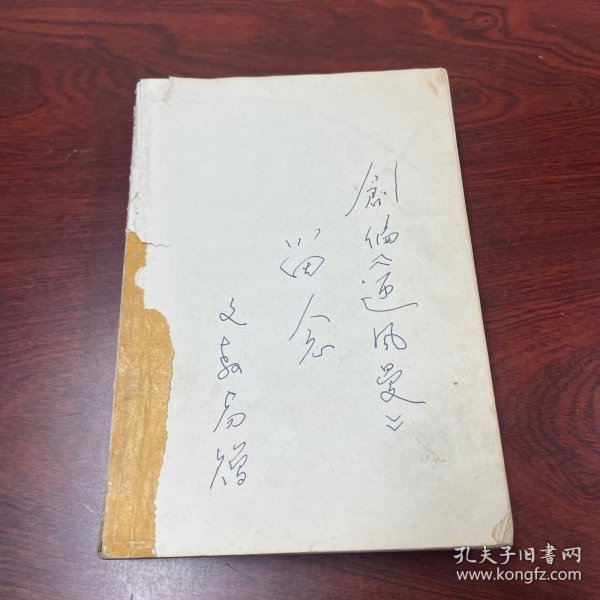 創编《迎风曼》
留念
文教局赠
孔夫子旧書网
www.kongfz.com